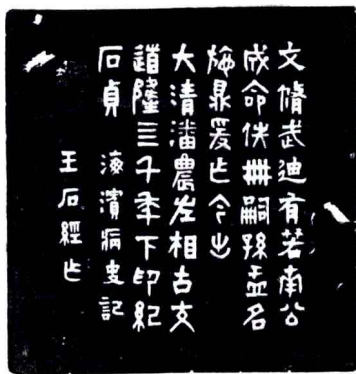 文脩武迪有若南公
成命佚冊嗣孫盂名
施鼎爰乍今㞢
大清潘農左相古文
道隆三千秊下印紀
石貞 海濱病史記
王石經乍